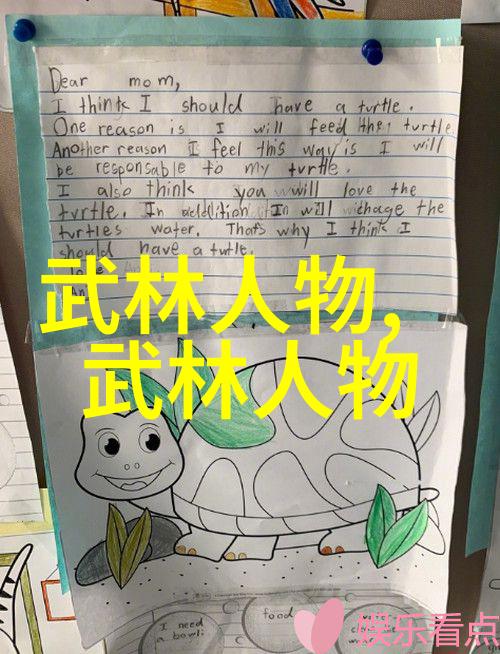 Dear mom,
I think I should have a turtle.
One reason is I will feed the turtle.
Another reason I feel this way is I will
be responsable to my turtle.
I also think you will love the
turtle. In addition I will chage the
turtles water. Thats why I think I
should have a turtle.
武林人物,
武林人物
I need
a bowl
food
娱乐看点